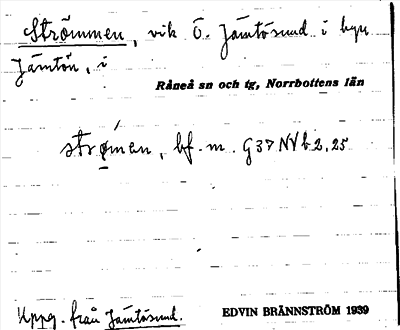 Strömmen, vik Ö. Jämtösund i byn
Jämtön, i
Råneå sn och tg, Norrbottens län
strǿmen, bf. m. G37NVb2,25
Uppg. från Jämtösund.
EDVIN BRÄNNSTRÖM 1939